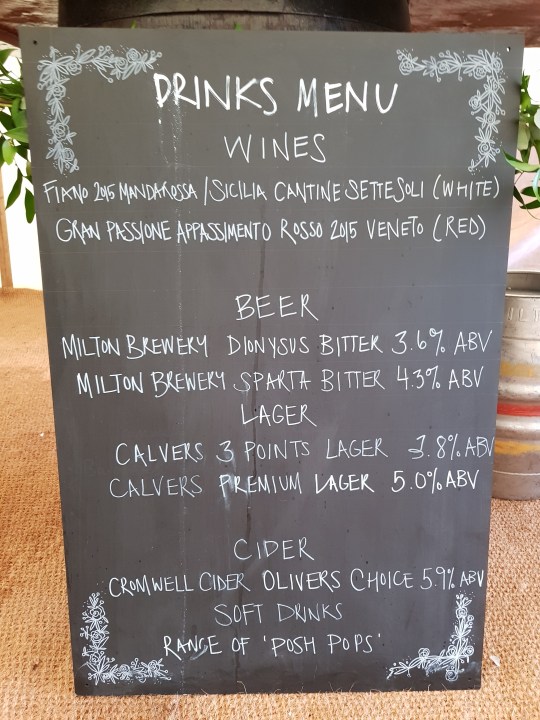 DRINKS MENU
WINES
FIANO 2015 MANDAROSSA / SICILIA CANTINE SETTESOLI (WHITE)
GRAN PASSIONE APPASSIMENTO ROSSO 2015 VENETO (RED)
BEER
MILTON BREWERY DIONYSUS BITTER 3.6% ABV
MILTON BREWERY SPARTA BITTER 4.3% ABV
LAGER
CALVERS 3 POINTS LAGER 3.8% ABV
CALVERS PREMIUM LAGER 5.0% ABV
CIDER
CROMWELL CIDER OLIVERS CHOICE 5.9% ABV
SOFT DRINKS
RANGE OF 'POSH POPS'